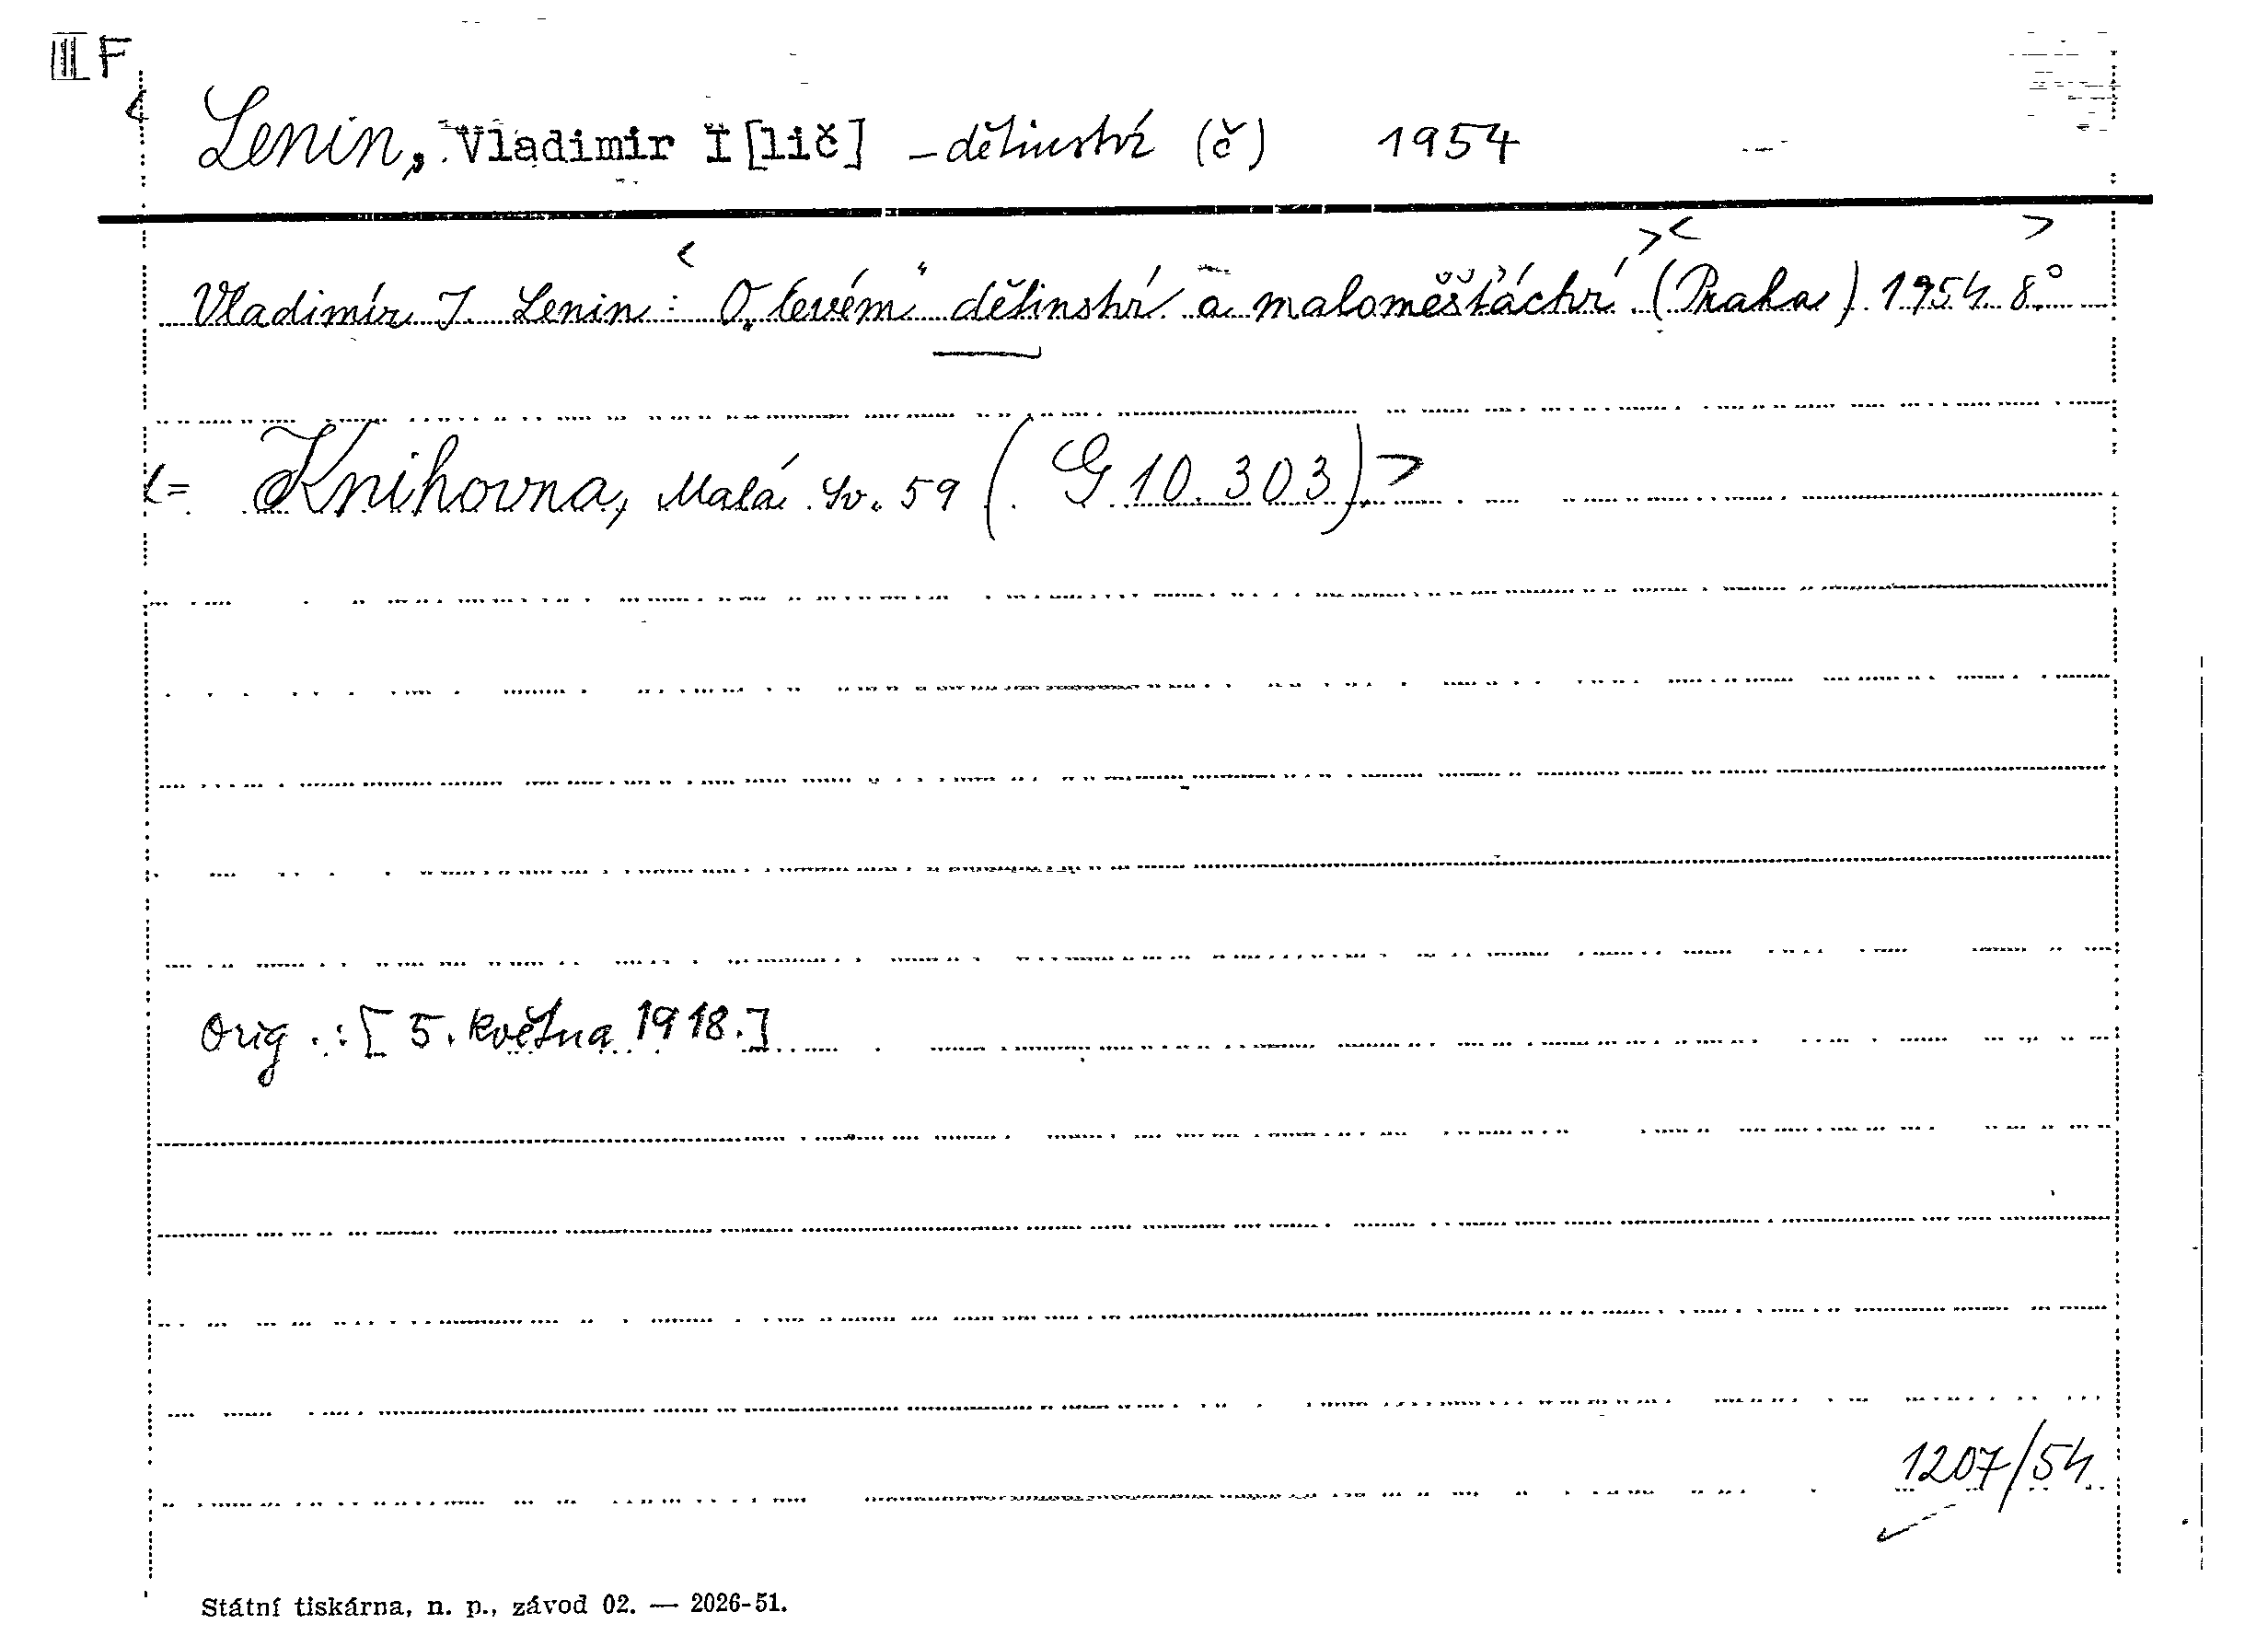 III F
< Lenin, Vladimir I[lič] – dětinství (č) 1954
Vladimír I. Lenin: < O „levém“ dětinství a maloměšťáctví >< (Praha) 1954 8° >
<= Knihovna, Malá Sv. 59 (G 10.303) >
Orig.: [5. května 1918.]
1207/54
Státní tiskárna, n. p., závod 02. — 2026-51.